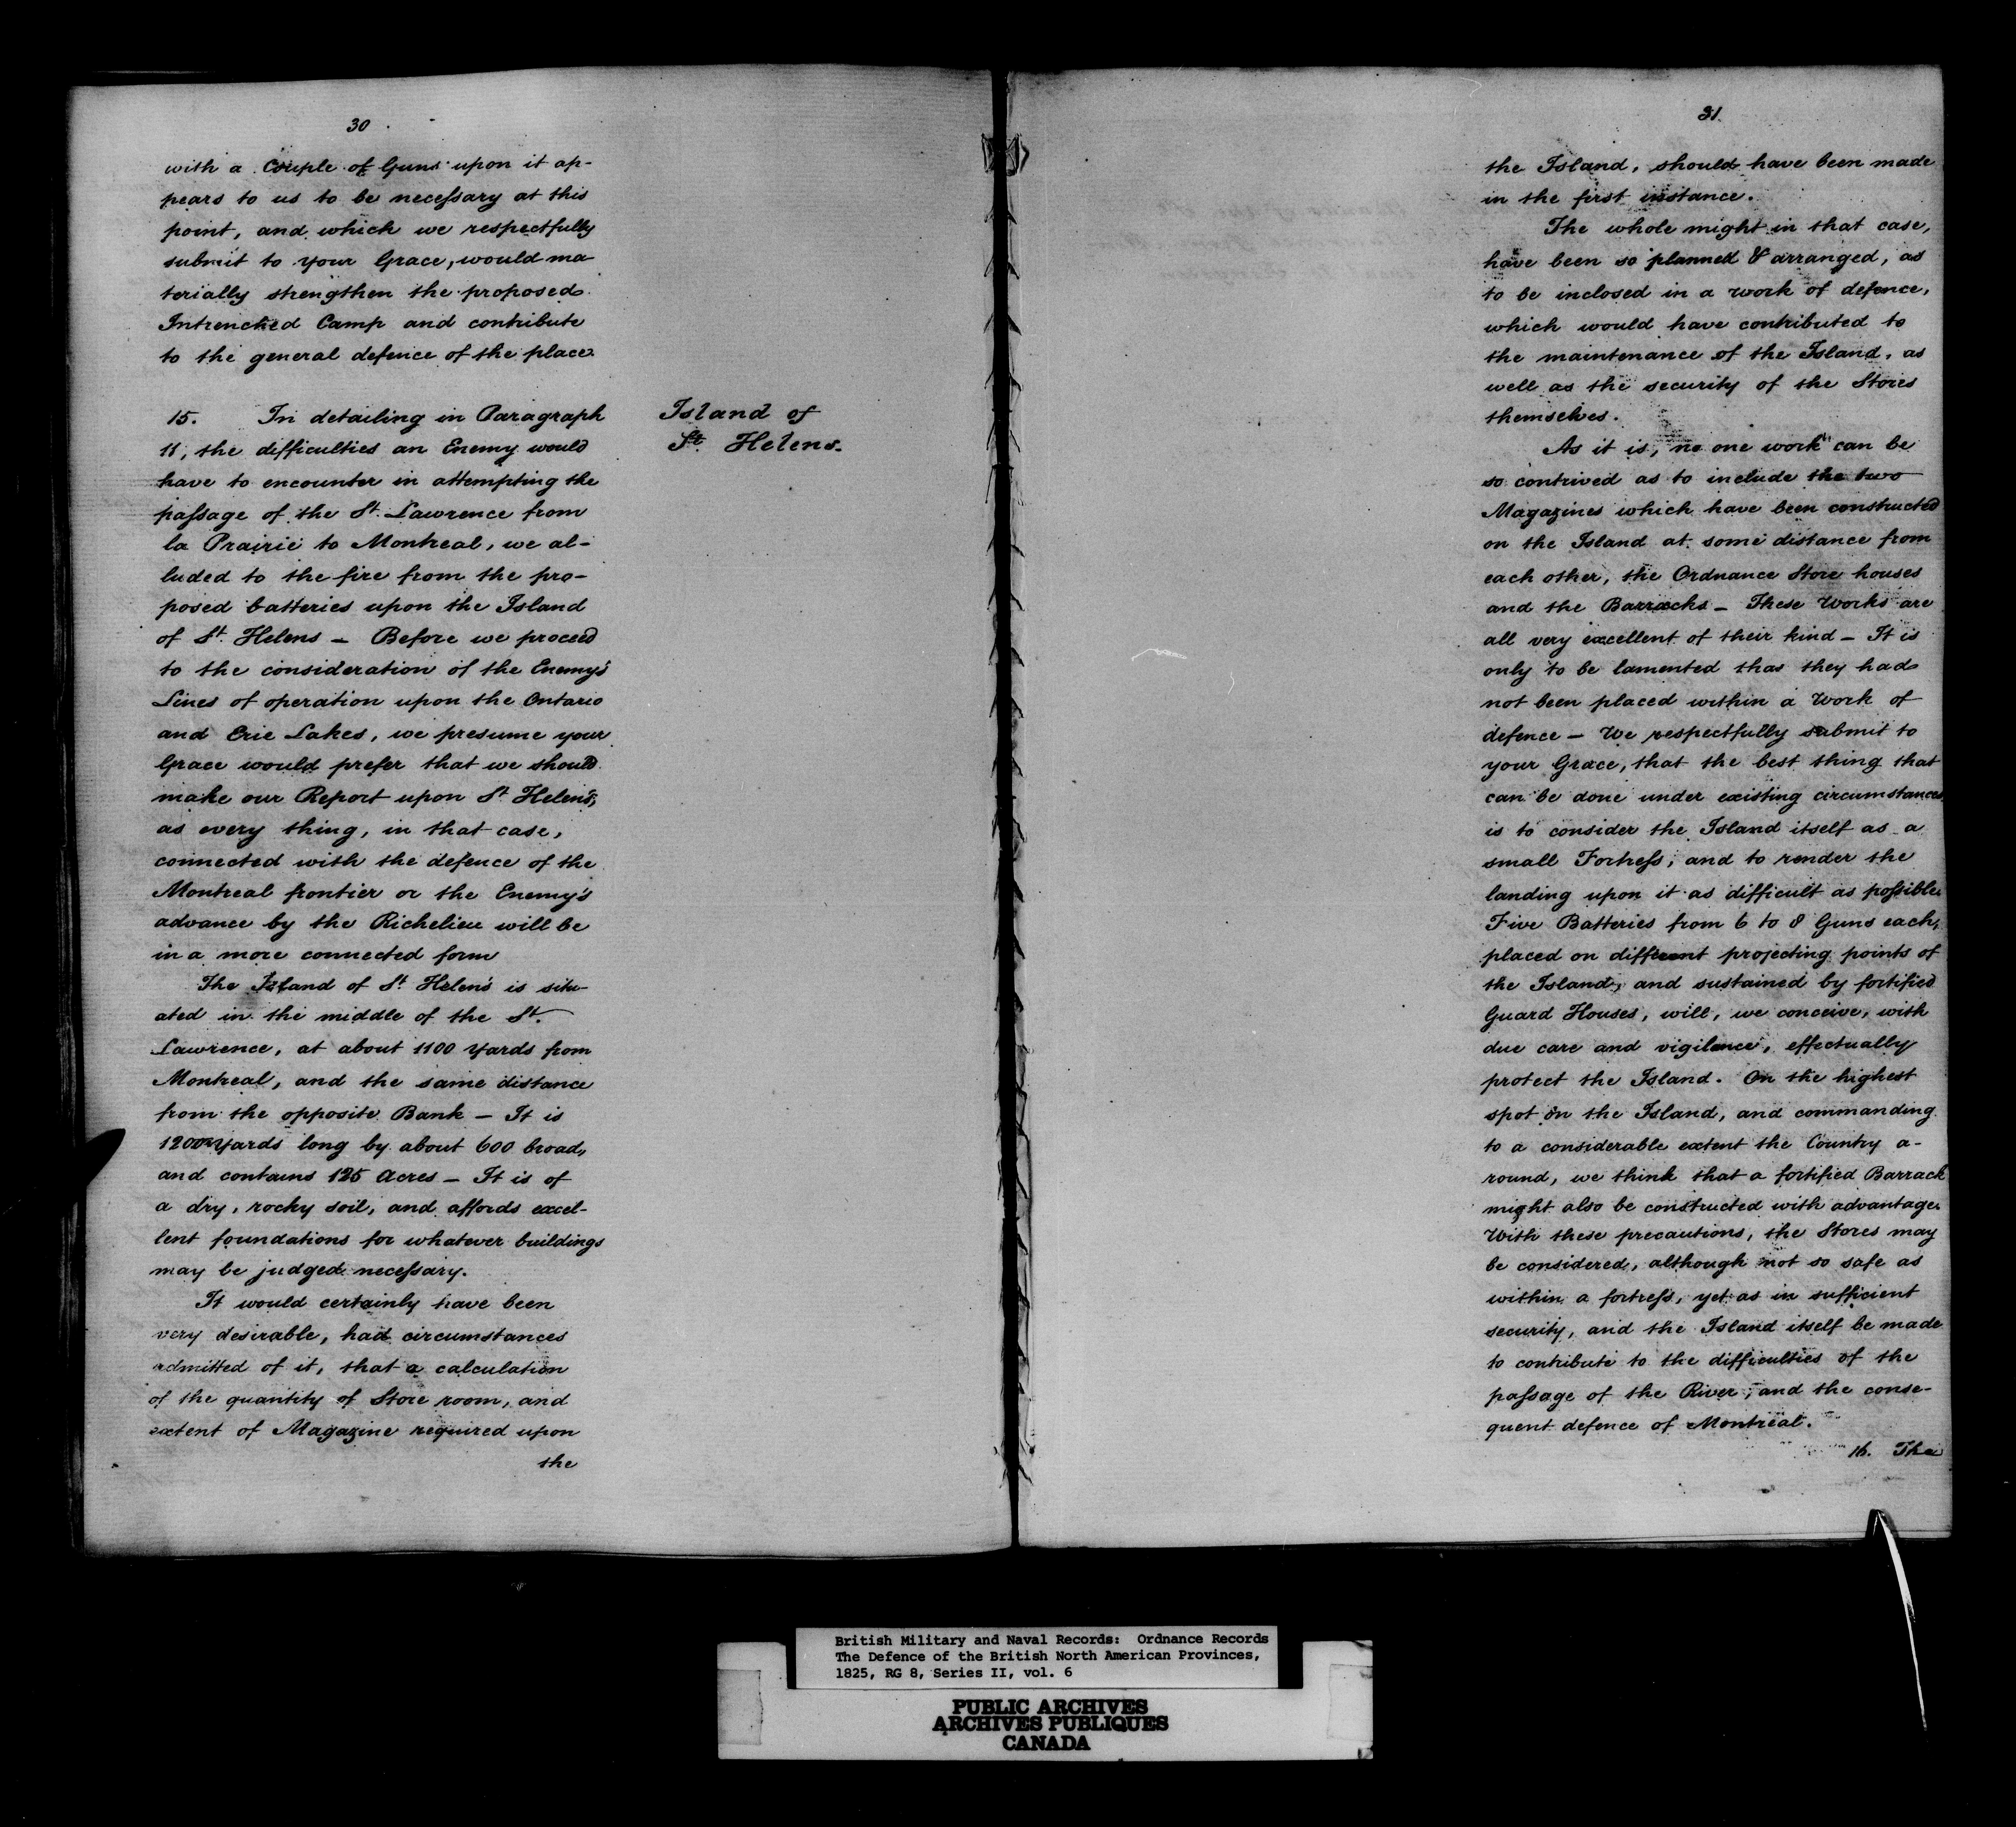 30
with a Couple of Guns upon it ap-
pears to us to be necessary at this
point, and which we respectfully
submit to your Grace, would ma
terially strengthen the proposed
Intrenched Camp and contribute
to the general defence of the place.
15. In detailing in Paragraph
11, the difficulties an Enemy would
have to encounter in attempting the
passage of the St. Lawrence from
la Prairie to Montreal, we al-
luded to the fire from the pro-
posed batteries upon the Island
of St. Helens — Before we proceed
to the consideration of the Enemy's
Lines of operation upon the Ontario
and Erie Lakes, we presume your
Grace would prefer that we should
make our Report upon St. Helen's,
as every thing, in that case,
connected with the defence of the
Montreal frontier or the Enemy's
advance by the Richelieu will be
in a more connected form
The Island of St. Helen's is situ-
ated in the middle of the St.
Lawrence, at about 1100 yards from
Montreal, and the same distance
from the opposite Bank — It is
1200 yards long by about 600 broad,
and contains 125 Acres — It is of
a dry, rocky soil, and affords excel-
lent foundations for whatever buildings
may be judged necessary.
It would certainly have been
very desirable, had circumstances
admitted of it, that a calculation
of the quantity of Store room, and
extent of Magazine required upon
the
Island of
St. Helens.
31
the Island, should have been made
in the first instance.
The whole might in that case,
have been so planned & arranged, as
to be inclosed in a work of defence,
which would have contributed to
the maintenance of the Island, as
well as the security of the Stores
themselves.
As it is, no one work can be
so contrived as to include the two
Magazines which have been constructed
on the Island at some distance from
each other, the Ordnance Store houses
and the Barracks — These Works are
all very excellent of their kind — It is
only to be lamented that they had
not been placed within a Work of
defence — We respectfully submit to
your Grace, that the best thing that
can be done under existing circumstances
is to consider the Island itself as a
small Fortress, and to render the
landing upon it as difficult as possible.
Five Batteries from 6 to 8 Guns each,
placed on different projecting points of
the Island, and sustained by fortified
Guard Houses, will, we conceive, with
due care and vigilance, effectually
protect the Island. On the highest
spot on the Island, and commanding
to a considerable extent the Country a-
round, we think that a fortified Barrack
might also be constructed with advantage.
With these precautions, the Stores may
be considered, although not so safe as
within a fortress, yet as in sufficient
security, and the Island itself be made
to contribute to the difficulties of the
passage of the River, and the conse-
quent defence of Montreal.
16. The
British Military and Naval Records: Ordnance Records
The Defence of the British North American Provinces,
1825, RG 8, Series II, vol. 6
PUBLIC ARCHIVES
ARCHIVES PUBLIQUES
CANADA